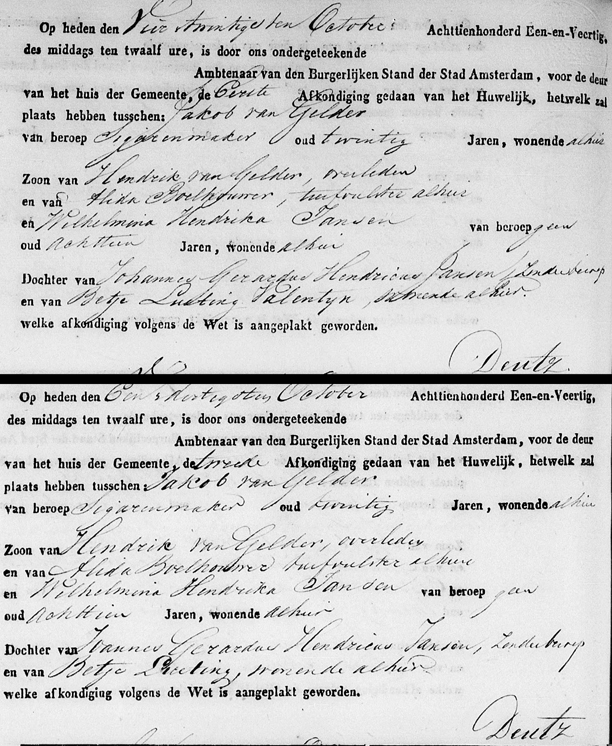 Op heden den Vier & twintigsten October Achttienhonderd Een-en-Veertig,
des middags ten twaalf ure, is door ons ondergeteekende
Ambtenaar van den Burgerlijken Stand der Stad Amsterdam, voor de deur
van het huis der Gemeente, de Eerste Afkondiging gedaan van het Huwelijk, hetwelk zal
plaats hebben tusschen: Jakob van Gelder
van beroep Sigarenmaker oud twintig Jaren, wonende alhier
Zoon van Hendrik van Gelder, overleden
en van Alida Boelhouwer, turfvulster alhier
en Wilhelmina Hendrika Jansen van beroep geen
oud Achttien Jaren, wonende alhier
Dochter van Johannes Gerardus Hendricus Jansen, zonder beroep
en van Betje Luiting Valentyn wonende alhier.
welke afkondiging volgens de Wet is aangeplakt geworden.
Deutz.
Op heden den Een & dertigsten October Achttienhonderd Een-en-Veertig,
des middags ten twaalf ure, is door ons ondergeteekende
Ambtenaar van den Burgerlijken Stand der Stad Amsterdam, voor de deur
van het huis der Gemeente, de tweede Afkondiging gedaan van het Huwelijk, hetwelk zal
plaats hebben tusschen Jakob van Gelder
van beroep Sigarenmaker oud twintig Jaren, wonende alhier
Zoon van Hendrik van Gelder, overleden
en van Alida Boelhouwer turfvulster alhier
en Wilhelmina Hendrika Jansen van beroep geen
oud Achttien Jaren, wonende alhier
Dochter van Joannes Gerardus Hendricus Jansen, zonder beroep
en van Betje Luiting, wonende alhier
welke afkondiging volgens de Wet is aangeplakt geworden.
Deutz